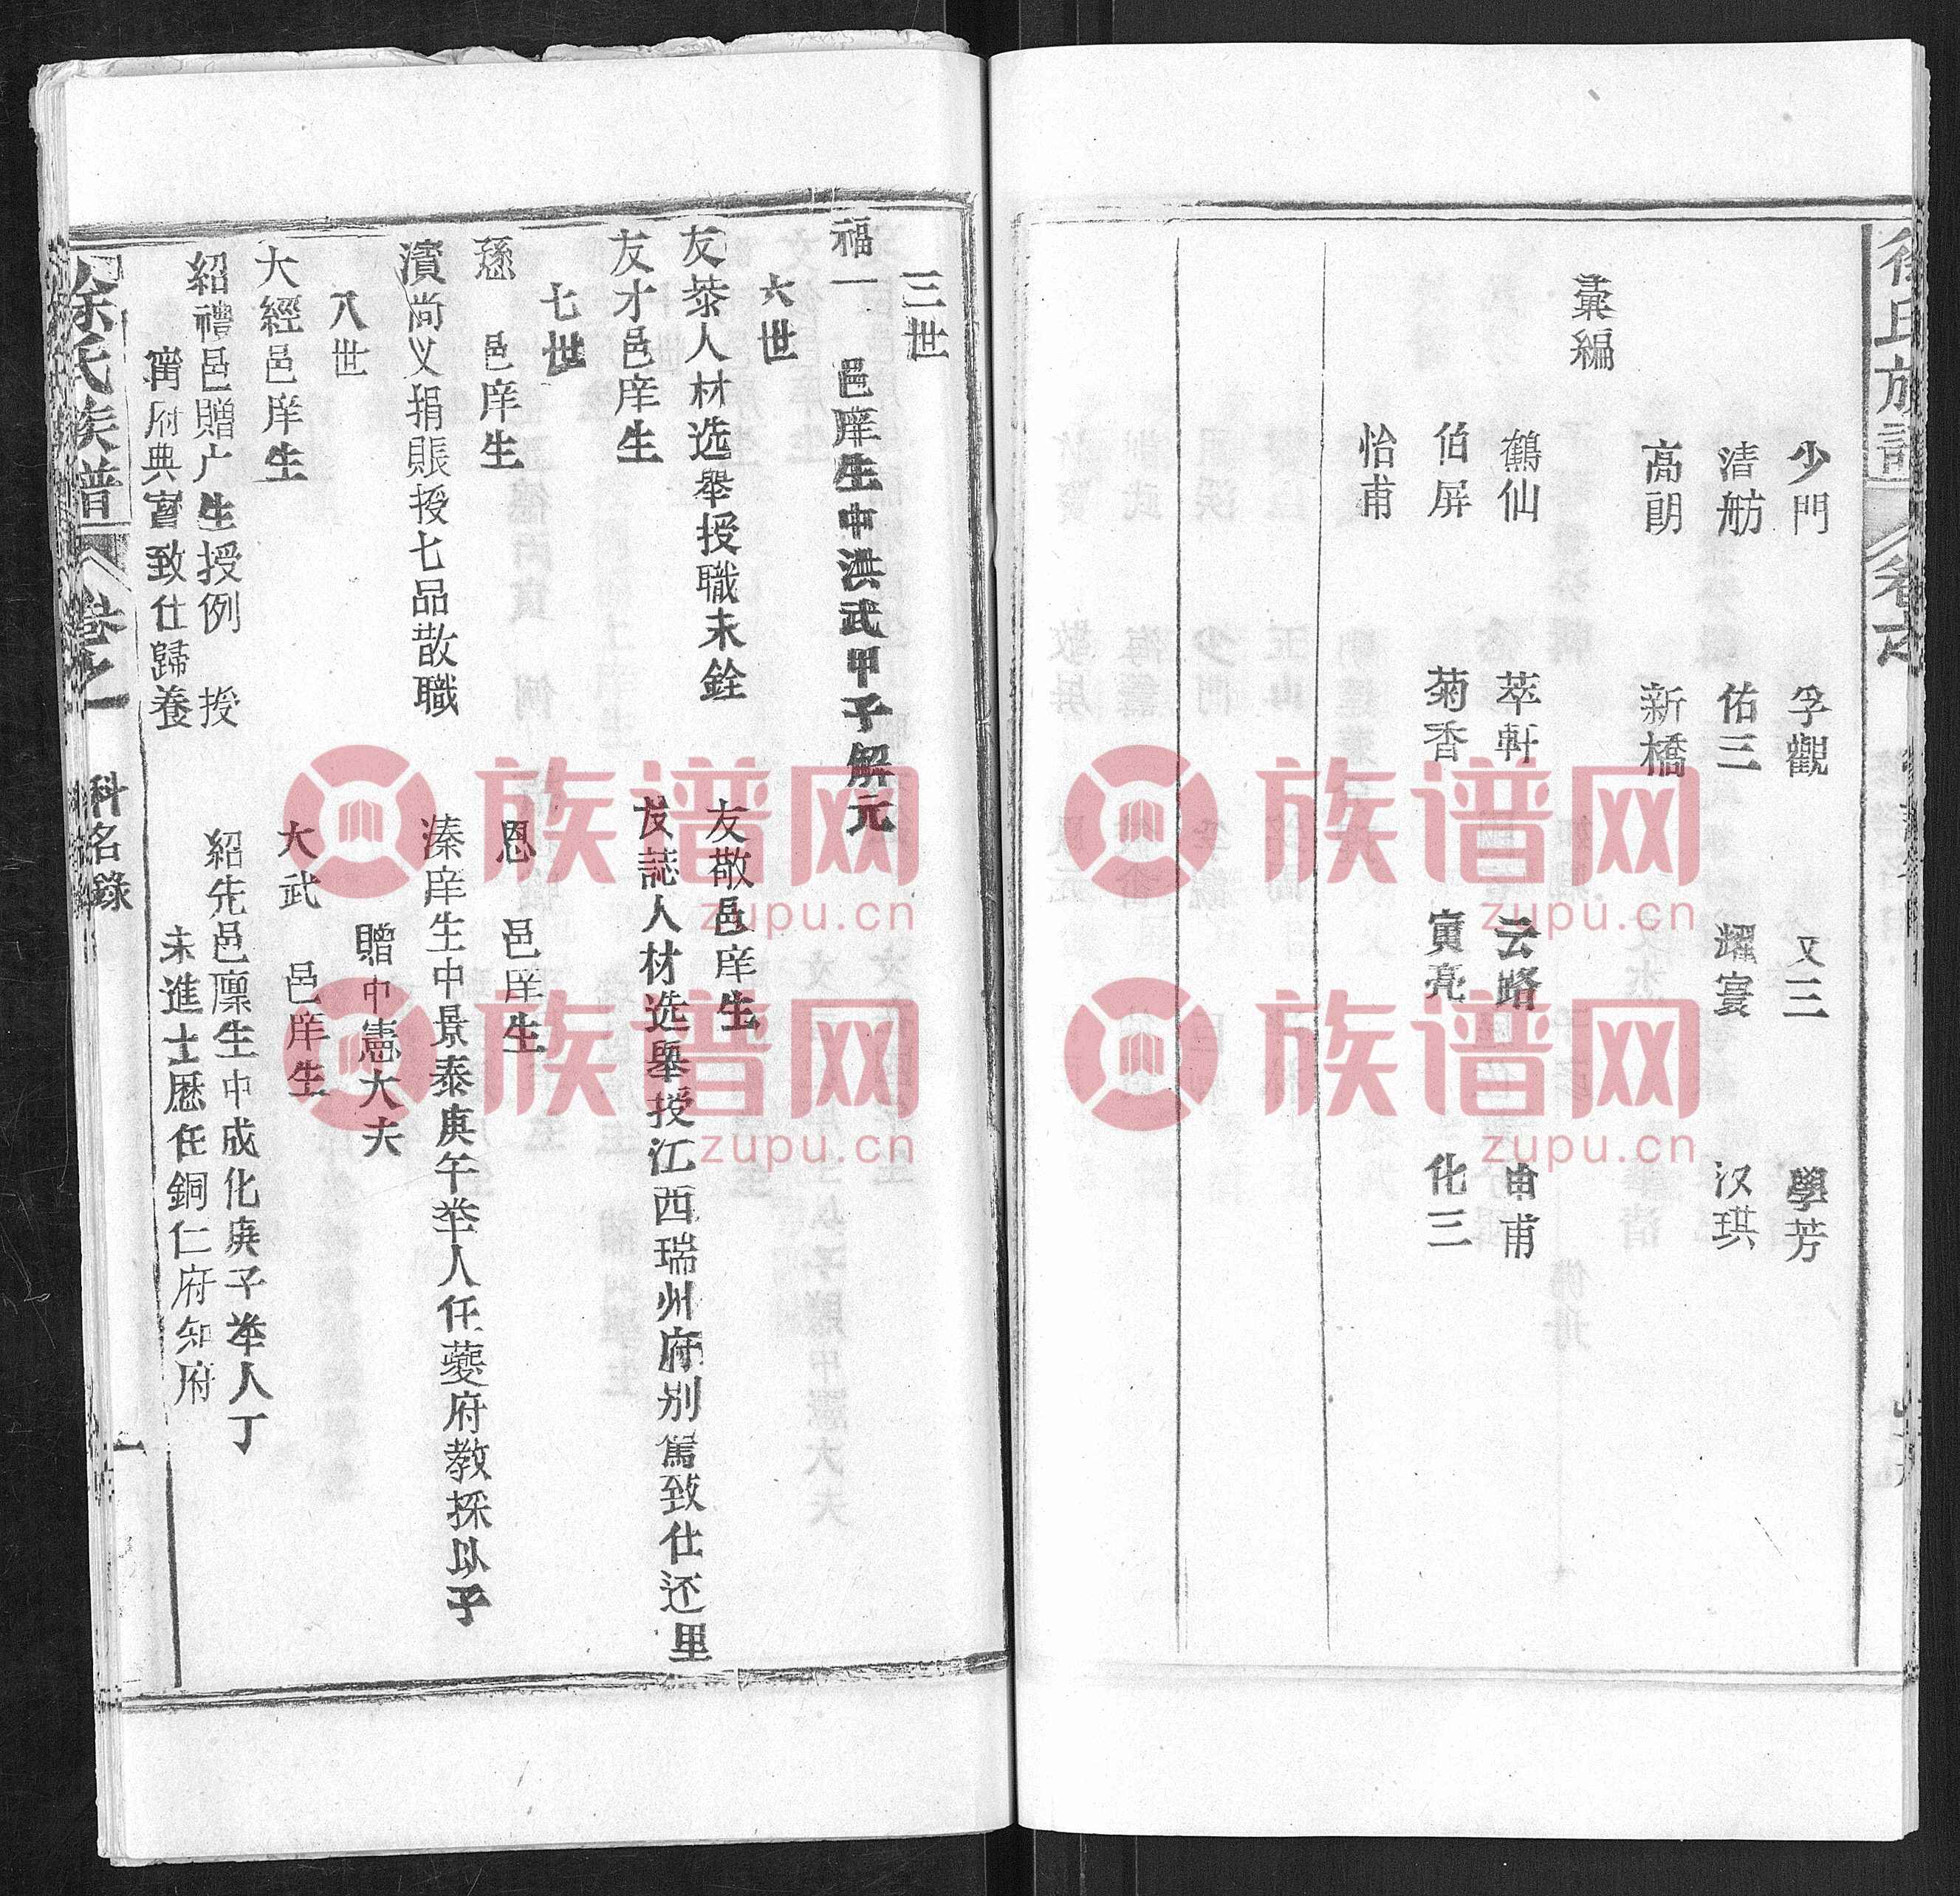 徐氏族譜
少門 孚觀 又三 學芳
清舫 佑三 耀寰 汉琪
高朗 新橋
彙編
鶴仙 萃軒 云路 申甫
伯屏 菊香 寅亮 化三
怡甫
三世
福一 邑庠生中洪武甲子解元
六世
友恭人材选舉授職未銓 友敬邑庠生
友才邑庠生 友誌人材选舉授江西瑞州府别駕致仕还里
七世
邑庠生 恩 邑庠生
濱尚义捐賬授七品散職 溱庠生中景泰庚午举人任夔府教採以子
八世 贈中憲大夫
大經邑庠生 大武 邑庠生
紹禮邑贈广生授例 授 紹先邑廪生中成化庚子举人丁
甯府典寳致仕歸養 未進士歷任銅仁府知府
徐氏族譜 卷之一 科名錄 一
族谱网
zupu.cn
族谱网
zupu.cn
族谱网
zupu.cn
族谱网
zupu.cn